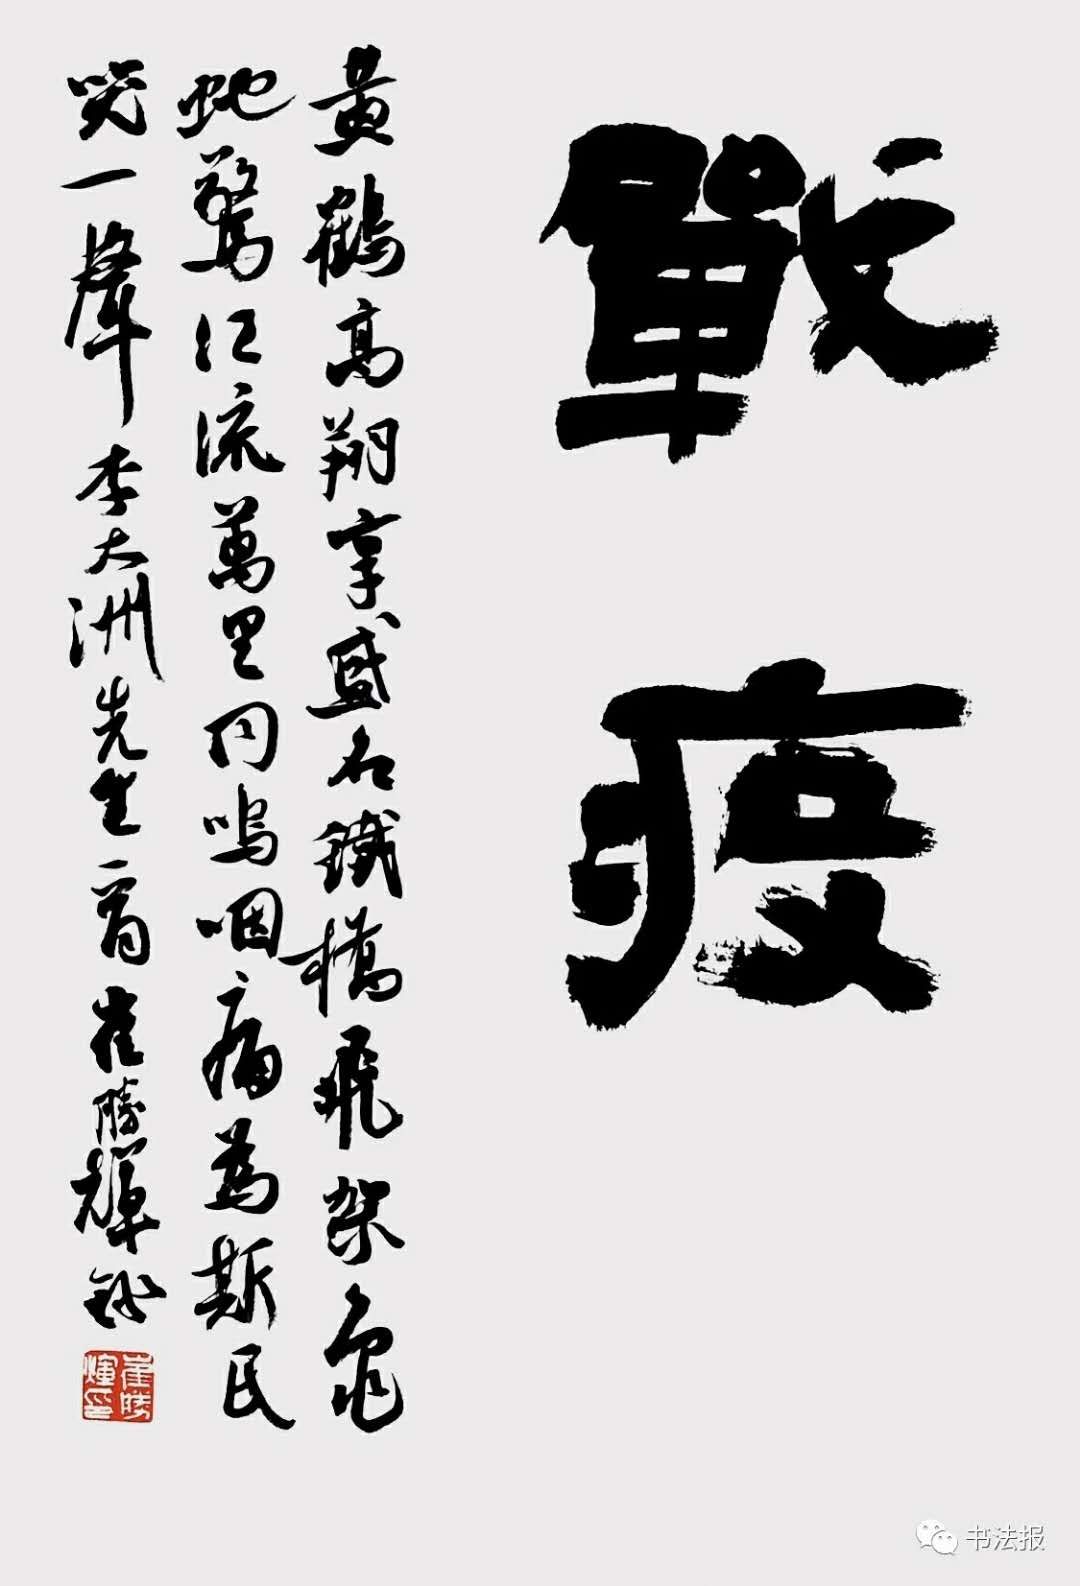 戰疫
黃鶴高翔享盛名鐵橋飛架龜
蛇驚江流萬里同嗚咽痛為斯民
哭一聲李大洲先生一首崔勝輝錄
崔勝煇印
书法报